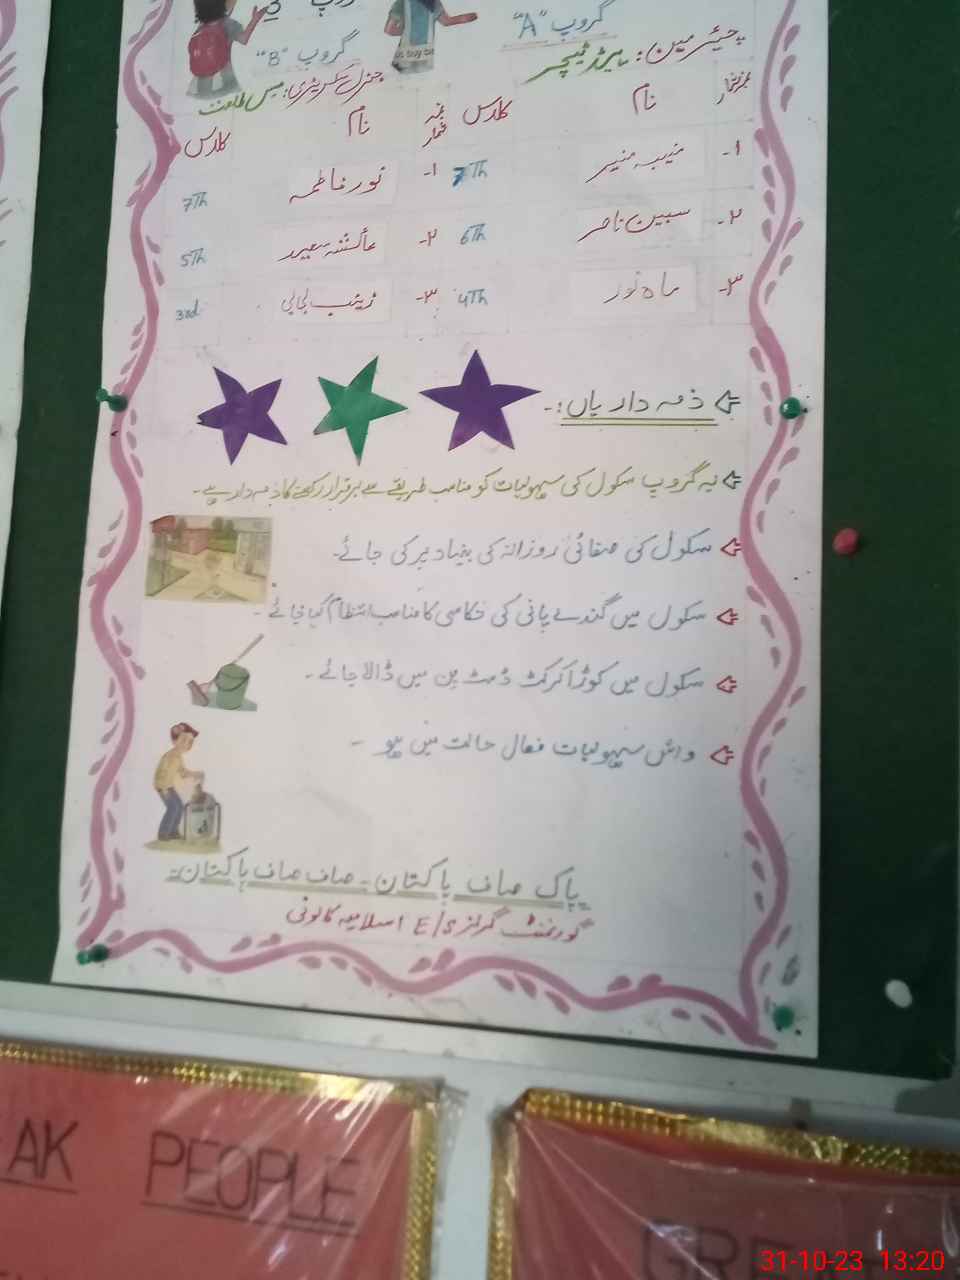 گروپ
گروپ "A"
چیئرمین: ہیڈ ٹیچر
نمبر شمار نام کلاس
1- منیبہ منیر 7Th
2- سبین ناصر 6Th
3- ماہ نور 4Th
گروپ "B"
جنرل سیکریٹری: مس
نمبر شمار نام کلاس
1- نور فاطمہ 7Th
2- عائشہ سعید 5Th
3- زینب 3rd
ذمہ داریاں:-
یہ گروپ سکول کی سہولیات کو مناسب طریقے سے برقرار رکھنے کا ذمہ دار ہے۔
سکول کی صفائی روزانہ کی بنیاد پر کی جائے۔
سکول میں گندے پانی کی نکاسی کا مناسب انتظام کیا جائے۔
سکول میں کوڑا کرکٹ ڈسٹ بن میں ڈالا جائے۔
واش سہولیات فعال حالت میں ہو۔
پاک صاف پاکستان۔ صاف صاف پاکستان۔
گورنمنٹ گرلز E/S اسلامیہ کالونی
AK PEOPLE
GRE
31-10-23 13:20